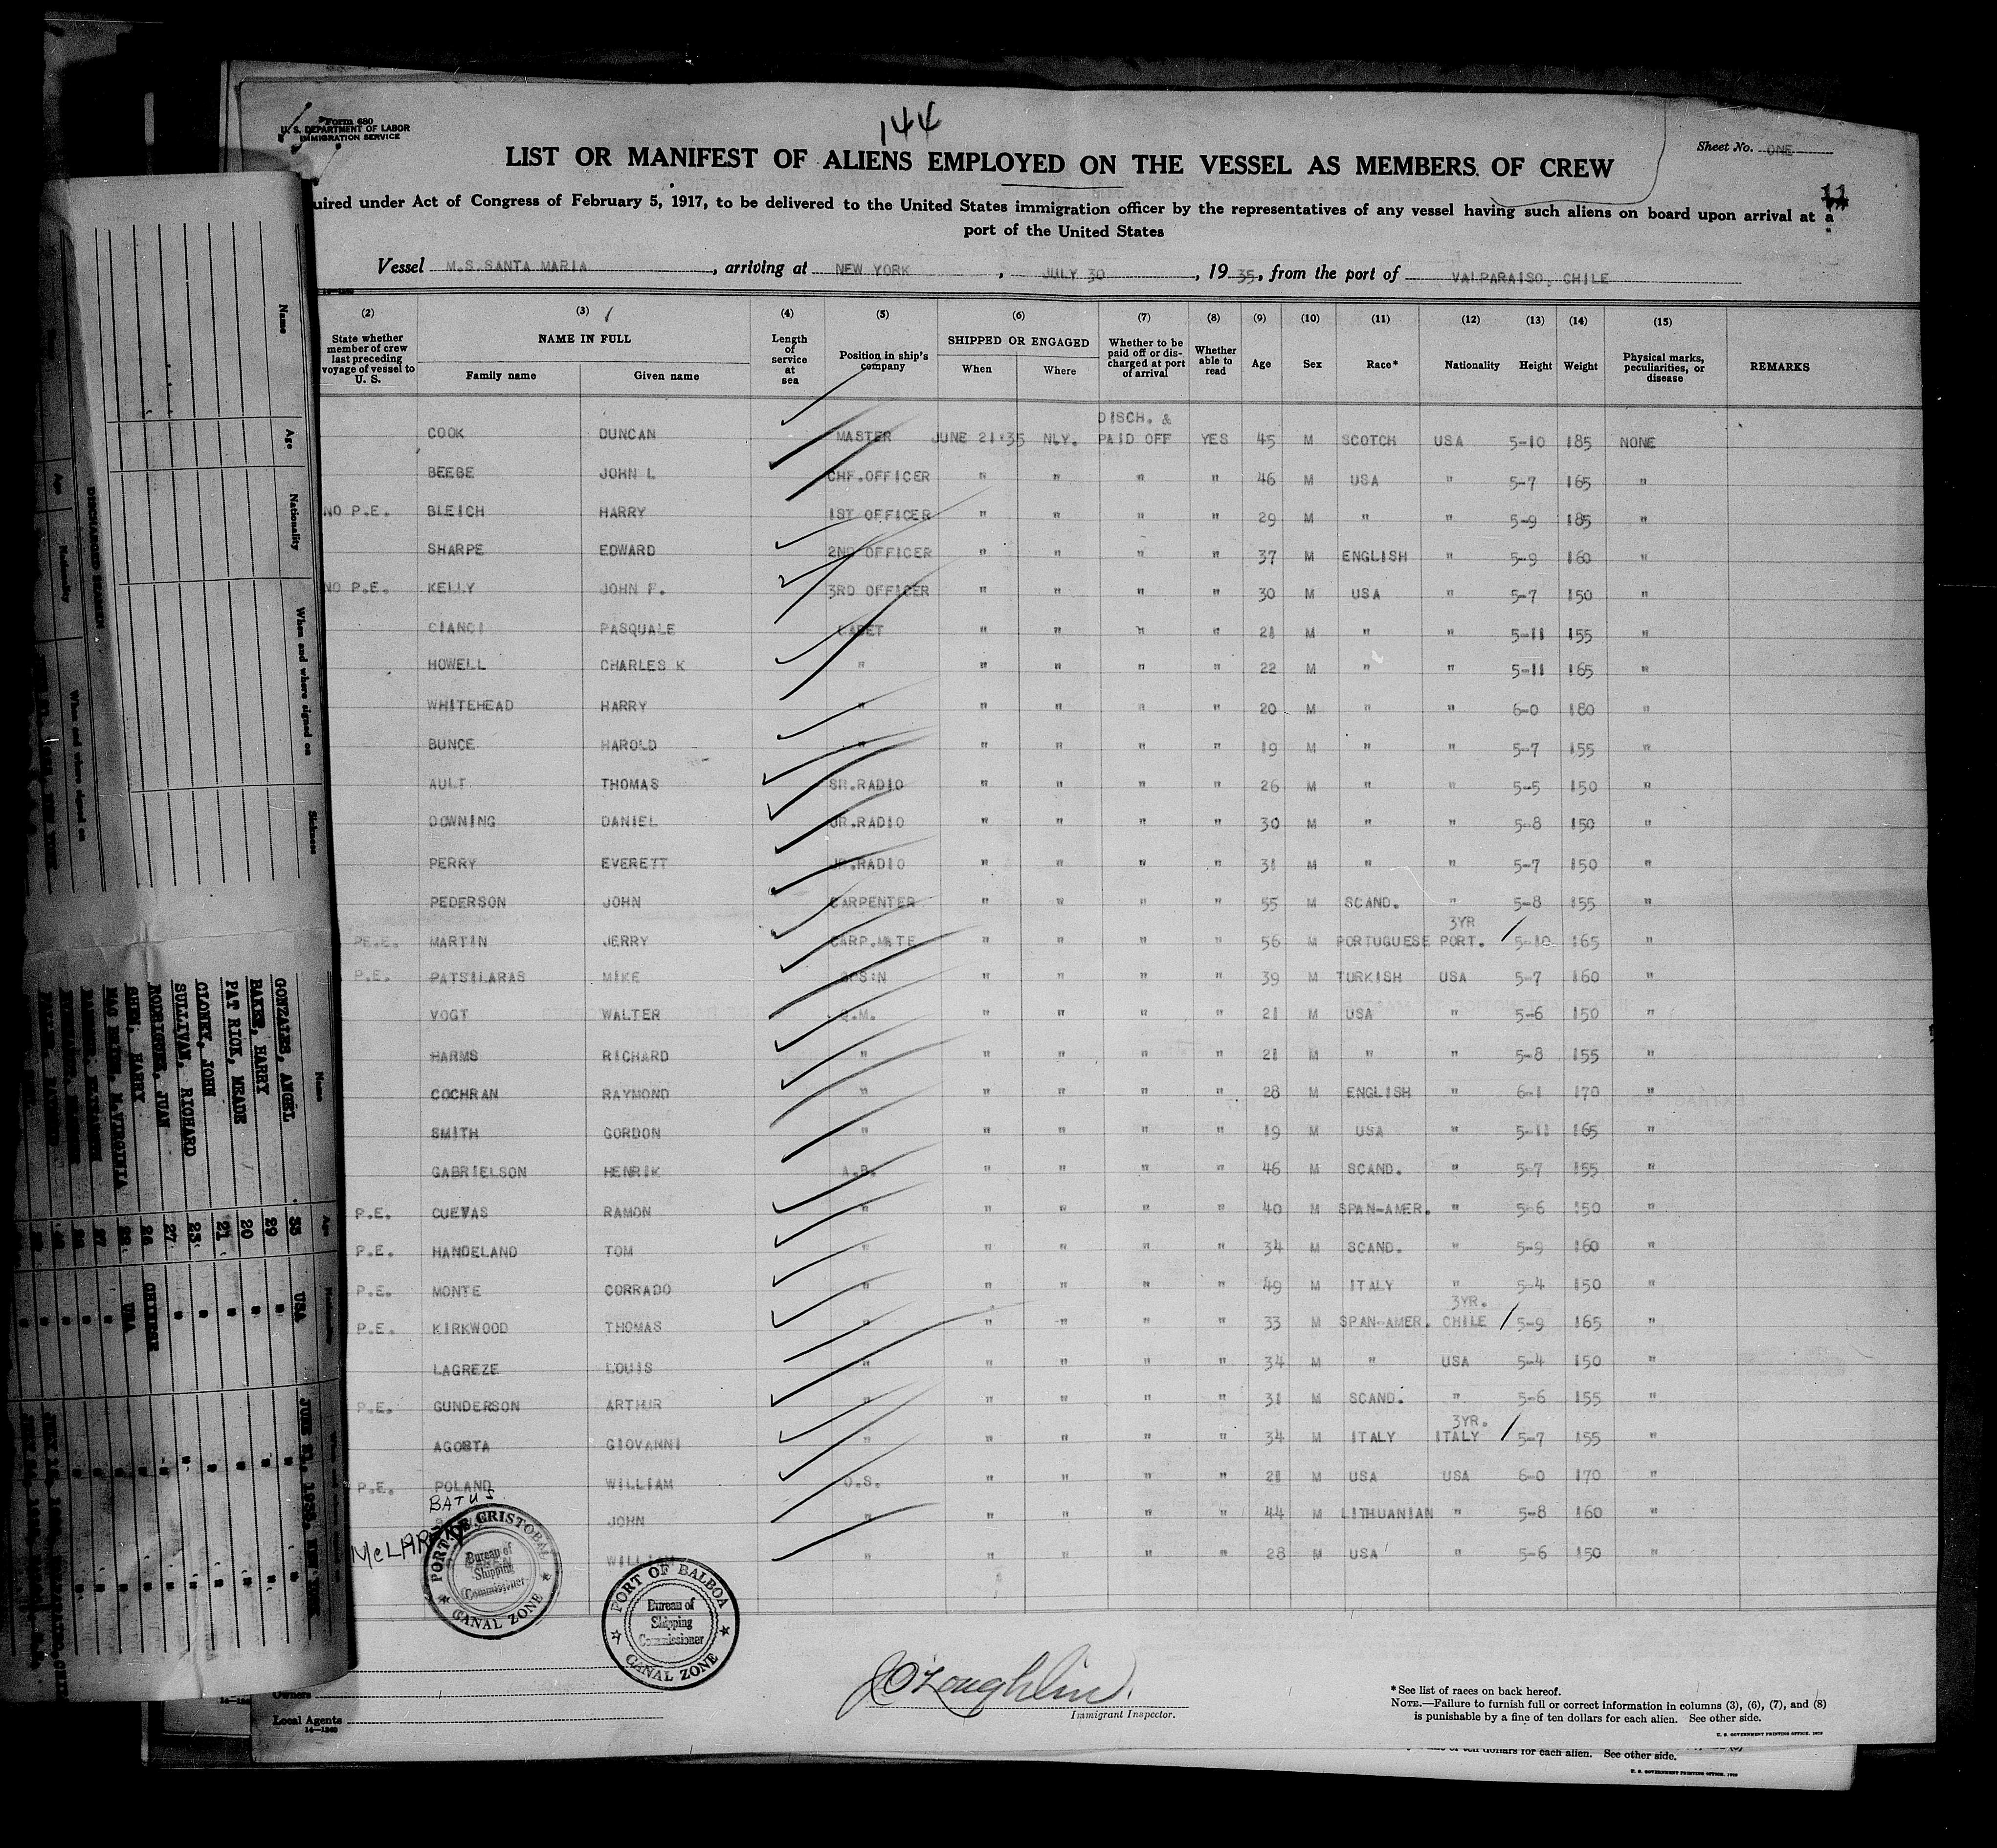 Form 680
U. S. DEPARTMENT OF LABOR
IMMIGRATION SERVICE
144
Sheet No. ONE
LIST OR MANIFEST OF ALIENS EMPLOYED ON THE VESSEL AS MEMBERS OF CREW
11
uired under Act of Congress of February 5, 1917, to be delivered to the United States immigration officer by the representatives of any vessel having such aliens on board upon arrival at a
port of the United States
Vessel M.S.SANTA MARIA, arriving at NEW YORK, JULY 30, 1935, from the port of VALPARAISO, CHILE
(2) (3) (4) (5) (6) (7) (8) (9) (10) (11) (12) (13) (14) (15)
State whether member of crew last preceding voyage of vessel to U. S. NAME IN FULL Length of service at sea Position in ship's company SHIPPED OR ENGAGED Whether to be paid off or discharged at port of arrival Whether able to read Age Sex Race* Nationality Height Weight Physical marks, peculiarities, or disease REMARKS
Family name Given name When Where
DISCH. &
COOK DUNCAN MASTER JUNE 21'35 NLY. PAID OFF YES 45 M SCOTCH USA 5-10 185 NONE
BEEBE JOHN L CHF.OFFICER " " " " 46 M USA " 5-7 165 "
NO P.E. BLEICH HARRY 1ST OFFICER " " " " 29 M " " 5-9 185 "
SHARPE EDWARD 2ND OFFICER " " " " 37 M ENGLISH " 5-9 160 "
NO P.E. KELLY JOHN F. 3RD OFFICER " " " " 30 M USA " 5-7 150 "
CIANCI PASQUALE CADET " " " " 21 M " " 5-11 155 "
HOWELL CHARLES K " " " " " 22 M " " 5-11 165 "
WHITEHEAD HARRY " " " " " 20 M " " 6-0 180 "
BUNCE HAROLD " " " " " 19 M " " 5-7 155 "
AULT THOMAS SR.RADIO " " " " 26 M " " 5-5 150 "
DOWNING DANIEL JR.RADIO " " " " 30 M " " 5-8 150 "
PERRY EVERETT JR.RADIO " " " " 31 M " " 5-7 150 "
PEDERSON JOHN CARPENTER " " " " 55 M SCAND. " 5-8 155 "
3YR
PE.E. MARTIN JERRY CARP.MATE " " " " 56 M PORTUGUESE PORT. 5-10 165 "
P.E. PATSILARAS MIKE BPS:N " " " " 39 M TURKISH USA 5-7 160 "
VOGT WALTER Q.M. " " " " 21 M USA " 5-6 150 "
HARMS RICHARD " " " " " 21 M " " 5-8 155 "
COCHRAN RAYMOND " " " " " 28 M ENGLISH " 6-1 170 "
SMITH GORDON " " " " " 19 M USA " 5-11 165 "
GABRIELSON HENRIK A.B. " " " " 46 M SCAND. " 5-7 155 "
P.E. CUEVAS RAMON " " " " " 40 M SPAN-AMER. " 5-6 150 "
P.E. HANDELAND TOM " " " " " 34 M SCAND. " 5-9 160 "
P.E. MONTE CORRADO " " " " " 49 M ITALY " 5-4 150 "
3YR.
P.E. KIRKWOOD THOMAS " " " " " 33 M SPAN-AMER. CHILE 5-9 165 "
LAGREZE LOUIS " " " " " 34 M " USA 5-4 150 "
P.E. GUNDERSON ARTHUR " " " " " 31 M SCAND. " 5-6 155 "
3YR.
AGOSTA GIOVANNI " " " " " 34 M ITALY ITALY 5-7 155 "
P.E. POLAND WILLIAM O.S. " " " " 21 M USA USA 6-0 170 "
BATUS
JOHN " " " " " 44 M LITHUANIAN " 5-8 160 "
WILLIAM " " " " " 28 M USA " 5-6 150 "
PORT OF CRISTOBAL
Bureau of
Shipping
Commissioner
CANAL ZONE
PORT OF BALBOA
Bureau of
Shipping
Commissioner
CANAL ZONE
Owners
Local Agents
14-1240
J O'Loughlin.
Immigrant Inspector.
*See list of races on back hereof.
NOTE.—Failure to furnish full or correct information in columns (3), (6), (7), and (8)
is punishable by a fine of ten dollars for each alien. See other side.
U. S. GOVERNMENT PRINTING OFFICE
ten dollars for each alien. See other side.
U. S. GOVERNMENT PRINTING OFFICE
Name Age Nationality When and where signed on Sickness
DISCHARGED SEAMEN
Name Age Nationality When and where signed on
GONZALES, ANGEL 35 USA JUNE 21, 1935, NEW YORK
BAKER, HARRY 29 " " "
PATRICK, MEADE 20 " " "
CLONEY, JOHN 21 " " "
SULLIVAN, RICHARD 23 " " "
RODRIGUEZ, JUAN 27 " " "
SHEW, HARRY 26